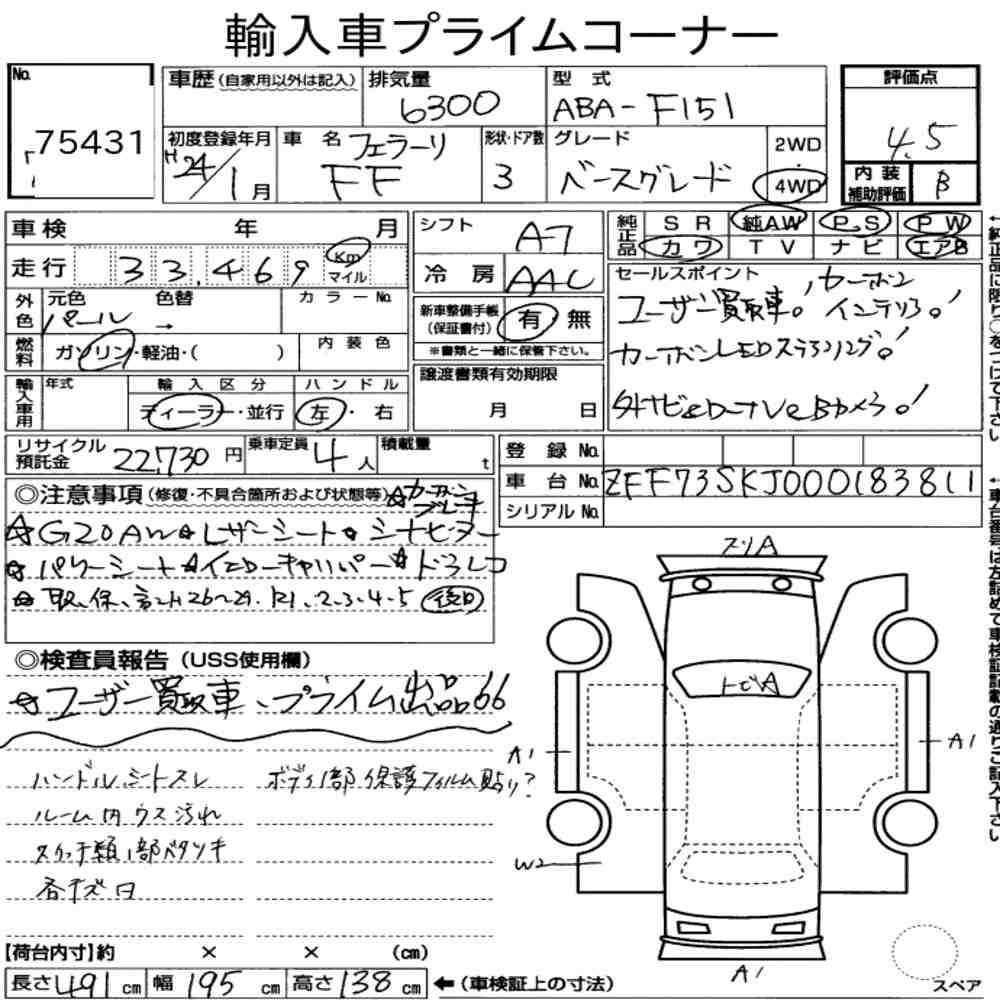 輸入車プライムコーナー
No.
75431
車歴 (自家用以外は記入)
排気量
6300
型式
ABA-F151
評価点
4.5
内装補助評価
B
初度登録年月
H24/1月
車名 フェラーリ
FF
形状・ドア数
3
グレード
ベースグレード
2WD
4WD
車検 年 月
走行 33,469 Km マイル
シフト
A7
冷房 AAC
純正品
SR 純AW P.S PW
カワ TV ナビ エアB
外色
元色 色替
パール →
カラーNo.
燃料
ガソリン・軽油・( )
内装色
新車整備手帳(保証書付)
有 無
※書類と一緒に保管下さい。
セールスポイント
ユーザー買取車! カーボンインテリア!
カーボンLEDステアリング!
外ナビ&D-TV&Bカメラ!
輸入車用
年式
輸入区分
ディーラー・並行
ハンドル
左・右
譲渡書類有効期限
月 日
リサイクル預託金 22,730円
乗車定員 4人
積載量 t
登録No.
車台No. ZFF73SKJ000183811
シリアルNo.
◎注意事項 (修復・不具合箇所および状態等) ☆カーボンブレーキ
☆G20AW☆レザーシート☆シートヒーター
☆パワーシート☆イエローキャリパー☆ドラレコ
☆取、保、記H26~29.R1.2.3.4.5 後日
◎検査員報告 (USS使用欄)
☆ユーザー買取車、プライム出品66
ハンドル、シートスレ
ルーム内ウス汚れ
スイッチ類1部ベタツキ
各キズ凹
ボディ1部保護フィルム貼り?
スリA
トビA
A1
A1
W2
A1
【荷台内寸】約 × × (cm)
長さ 491 cm 幅 195 cm 高さ 138 cm ←(車検証上の寸法)
スペア
←純正品に限り○をつけて下さい
←車台番号は左詰めで車検証記載の通りご記入下さい